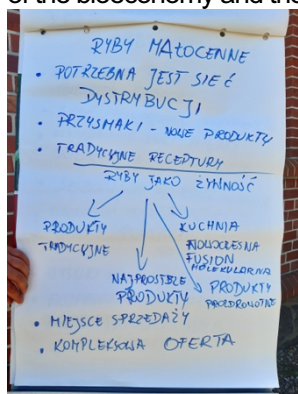 of the bioeconomy and the
RYBY MAŁOCENNE
• POTRZEBNA JEST SIEĆ
DYSTRYBUCJI
• PRZYSMAKI - NOWE PRODUKTY
• TRADYCYJNE RECEPTURY
RYBY JAKO ŻYWNOŚĆ
PRODUKTY
TRADYCYJNE
KUCHNIA
NOWOCZESNA
FUSION
MOLEKULARNA
NAJPROSTSZE
PRODUKTY
PRODUKTY
PROZDROWOTNE
• MIEJSCE SPRZEDAŻY
• KOMPLEKSOWA OFERTA